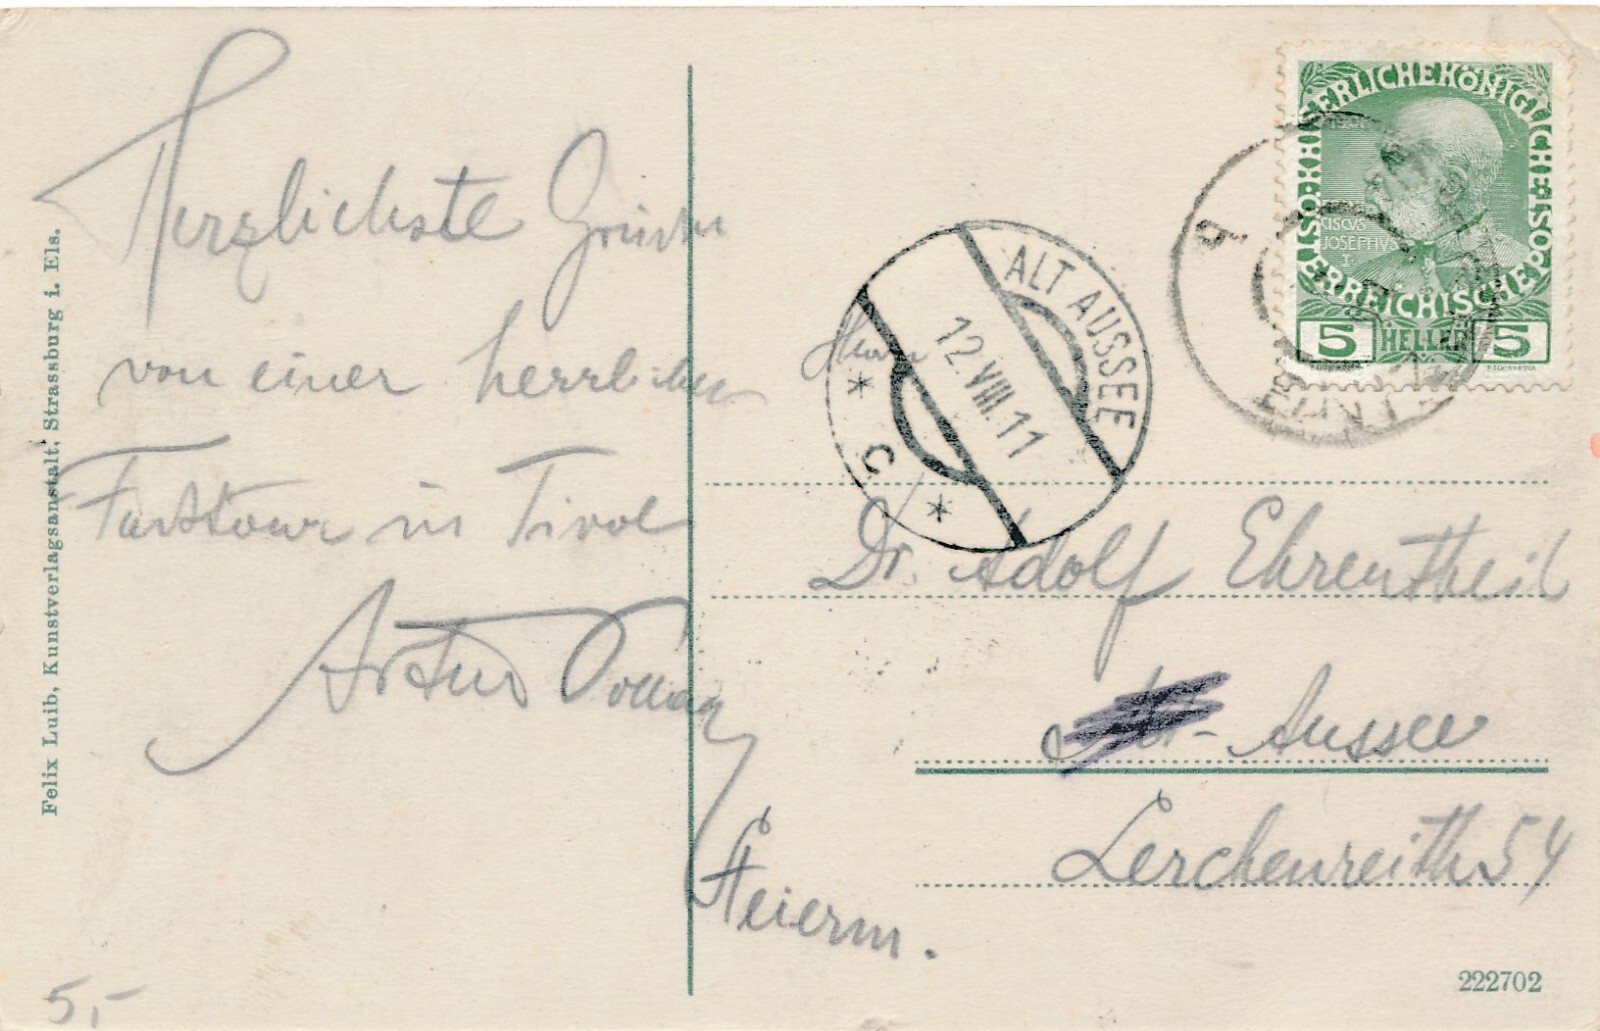 Herzlichste Grüsse
von einer herrlichen
Fusstour in Tirol
Artur
Felix Luib, Kunstverlagsanstalt, Strassburg i. Els.
5,-
KAISERLICHE KÖNIGLICHE ÖSTERREICHISCHE POST
1908
CISCVS
JOSEPHVS
I
5 HELLER 5
b
ALT AUSSEE
12.VIII.11
* C *
Herrn
Dr Adolf Ehrentheil
Alt-Aussee
Lerchenreith 54
Steierm.
222702